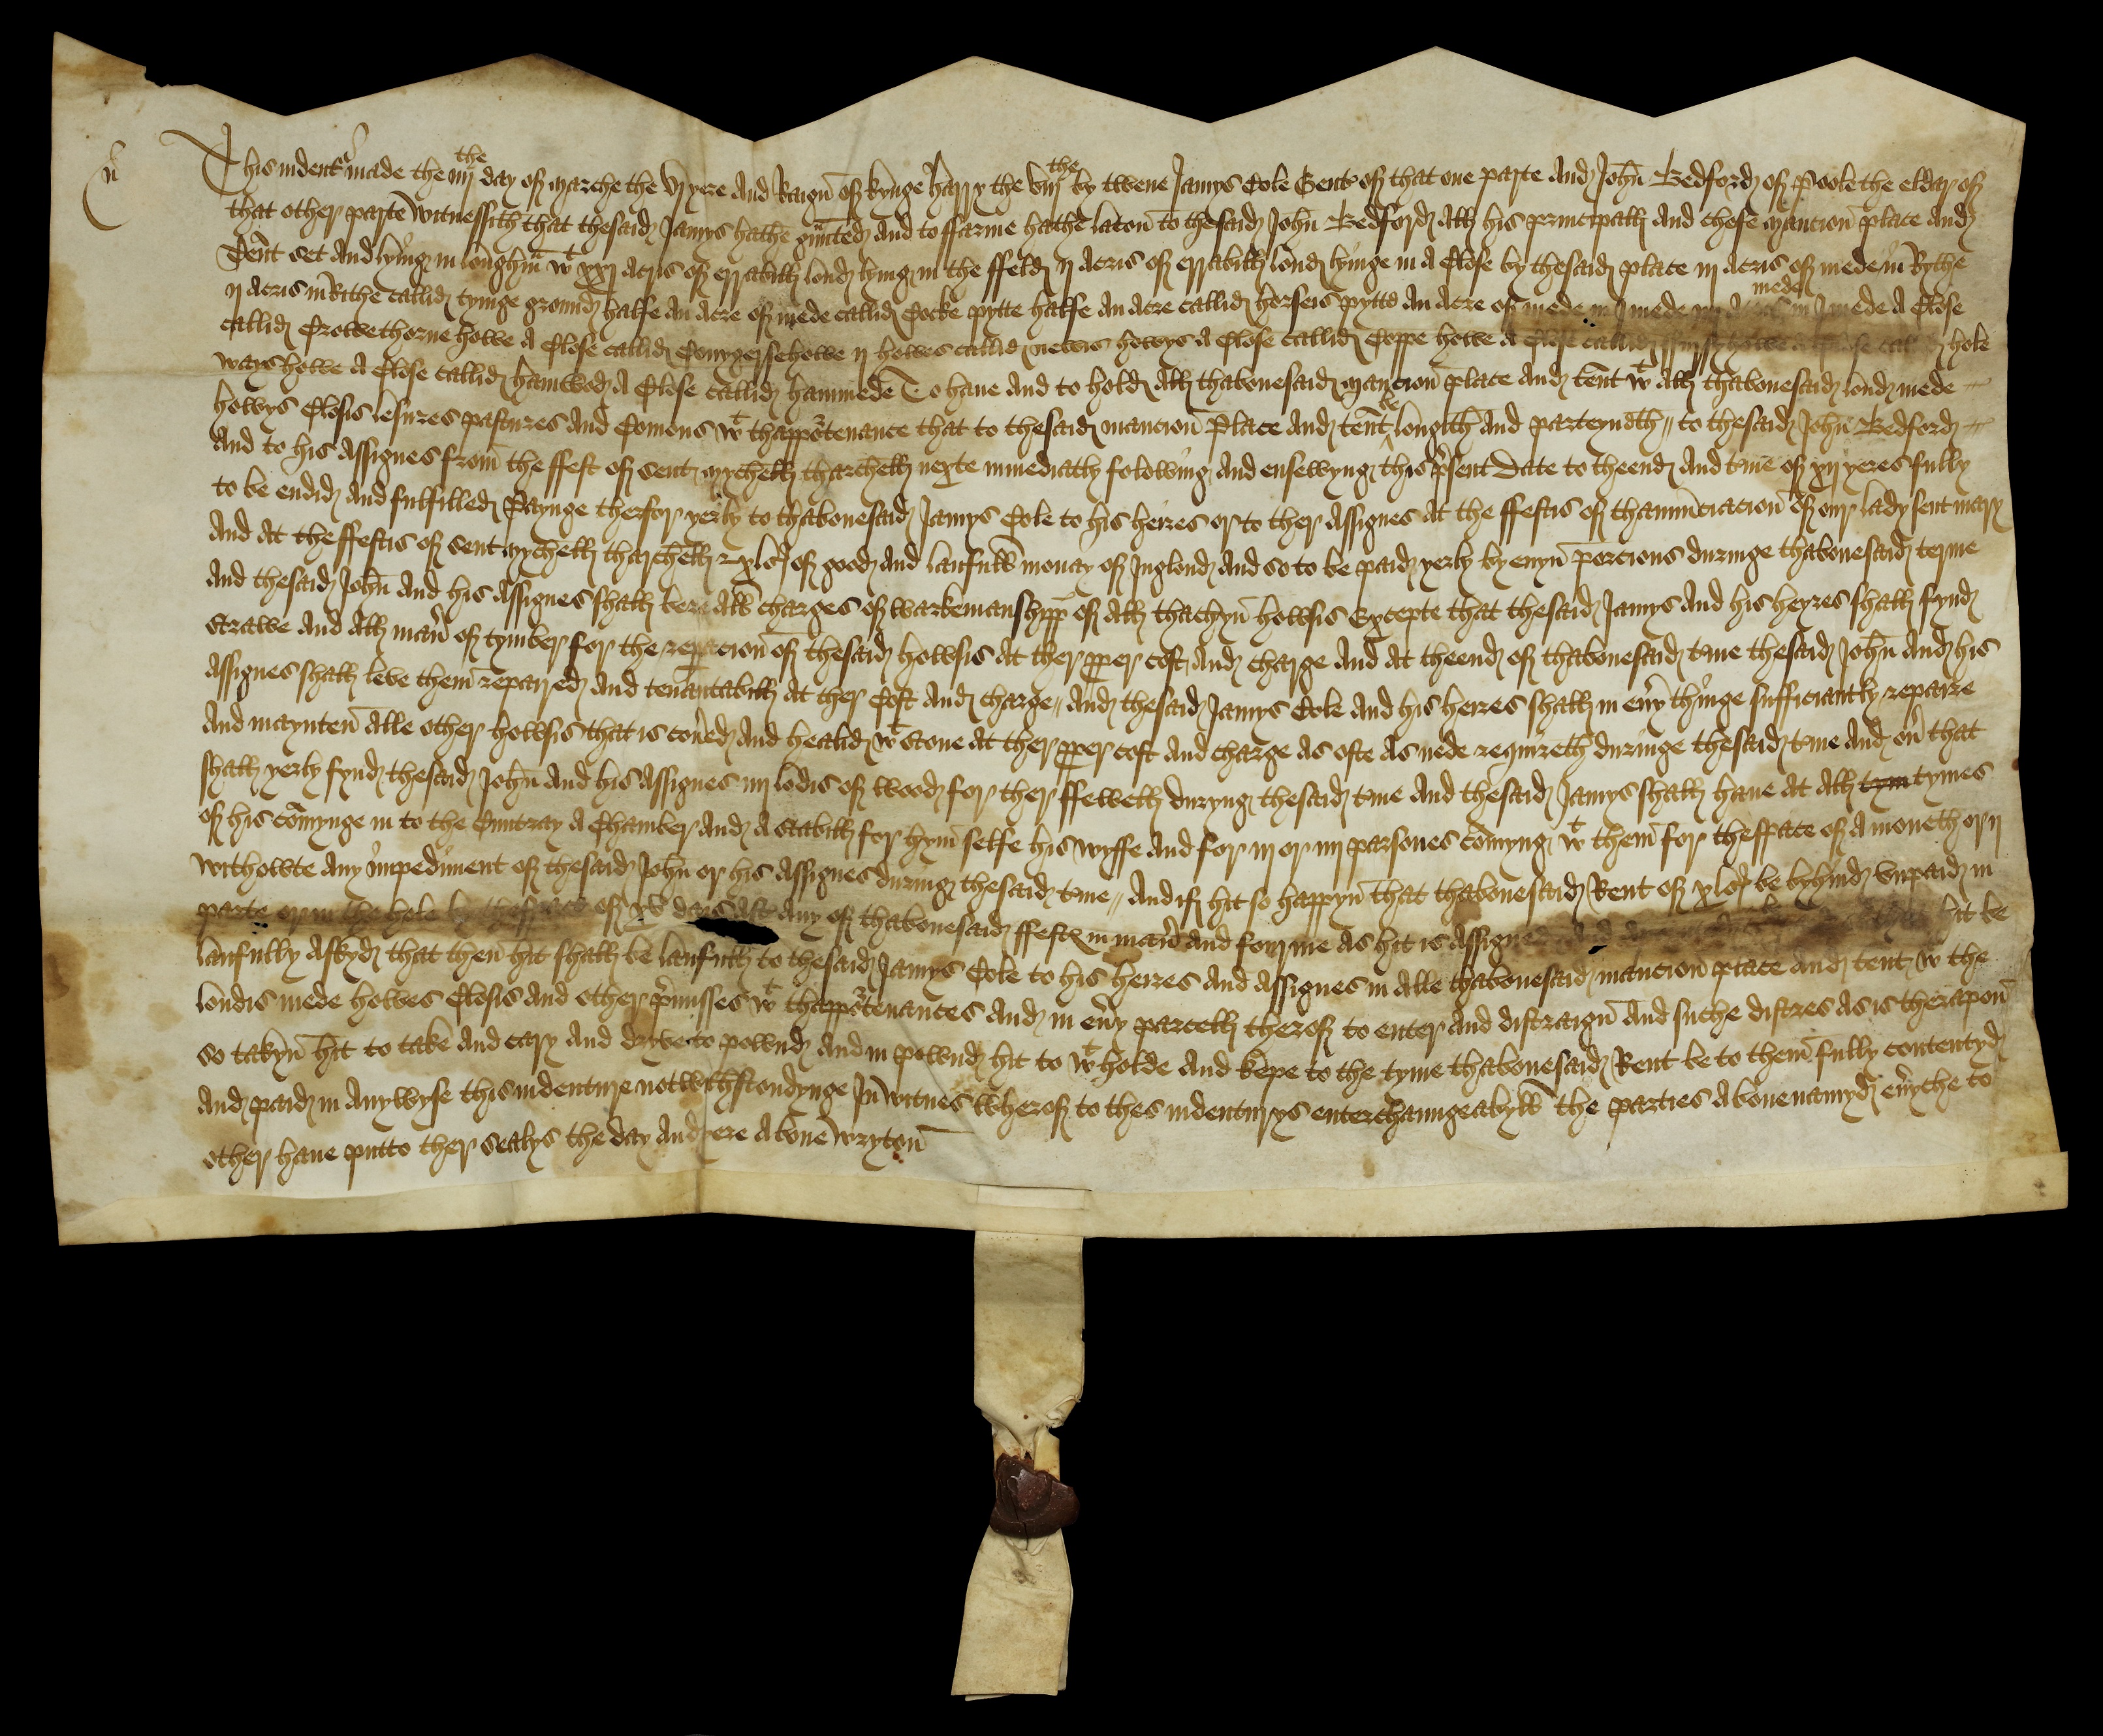 This indentr made the iiij the day of marche the vj yere And Raign of kynge harry the viij the by twene Jamys Cole Gent of that one parte And John Bedford of Poole the eldar of
that other parte witnessith that thesaid Jamys hathe gnted And to ffarme hathe laton to thesaid John Bedford All his principall And chefe mancion place And
Tent set And lying in longhm wt xxj Acris of errabill lond lying in the ffeld ij Acris of errabill lond lyinge in a Close by thesaid place iij Acris of mede in Rythe
ij Acris in Rithe callid tyinge ground halfe An Acre of mede callid Cocke pytte halfe An Acre callid horseis pytto An Acre of mede in mede mede A Close
callid Crowethorne howe A Close callid Conygersehowe ij howes callid newis howys A Close callid Coppe howe A Close callid hole
ways howe A Close callid hamwod A Close callid hammede To haue And to hold All thabouesaid mancion place And tent wt All thabouesaid lond mede
howys Closis lesures pastures And Comons wt thapportenance that to thesaid mancion Place And tent be longith And parteynoth to thesaid John Bedford
And to his Assignes from the ffest of sent mychell tharchell nexte immediatly folowing And ensewyng this psent Date to theend And tme of xij yeres fully
to be endid And fulfilled Paynge therfor yerly to thabouesaid Jamys Cole to his heires or to ther Assignes At the ffestis of thannuciacion of our lady sent mary
And At the ffestis of sent mychell tharchell xls of good And laufull monay of Inglond And so to be paid yerly by euyn porcions duringe thabouesaid terme
And thesaid John And his Assignes shall bere All charges of warkemanshipp of All thachyn howsis Excepte that thesaid Jamys And his heyres shall fynd
strawe And All man of tymber for the repacion of thesaid howsis At ther pper cost And charge And At theend of thabouesaid tme thesaid John And his
Assignes shall leve them repaired And tenantabill At ther Cost And charge And thesaid Jamys Cole And his heires shall in eny thinge sufficiantly repaire
And maynten Alle other howsis that is coued And healid wt stone At ther pper cost And charge As ofte As nede requireth duringe thesaid tme And ou that
shall yerly fynd thesaid John And his Assignes iiij lodis of wood for ther ffewell duryng thesaid tme And thesaid Jamys shall haue At All tym tymes
of his comynge in to the Cuntray A Chamber And A stabill for hym selfe his wyffe And for iij or iiij parsones comyng wt them for thespace of A moneth or ij
withowte Any impediment of thesaid John or his Assignes during thesaid tme And if hit so happyn that thabouesaid Rent of xls be byhind vnpaid in
parte or in the hole by thespace of xv days aft Any of thabouesaid ffestes in man And fourme As hit is Assigned hit be
laufully Askyd that then hit shall be laufull to thesaid Jamys Cole to his heires And Assignes in Alle thabouesaid mancion place And tent wt the
londis mede howes Closis And other pmisses wt thapportenances And in euy parcell therof to enter And distraign And suche distres As is therapon
so takyn hit to take And cary And dryve to pownd And in pownd hit to wt holde And kepe to the tyme thabouesaid Rent be to them fully contentyd
And paid in Any wyse this indenture notwithstondynge In witnes wherof to thes indenturys enterchaungeabyll the parties Aboue namyd eueryche to
other haue putto ther sealys the day And yere Aboue wryton